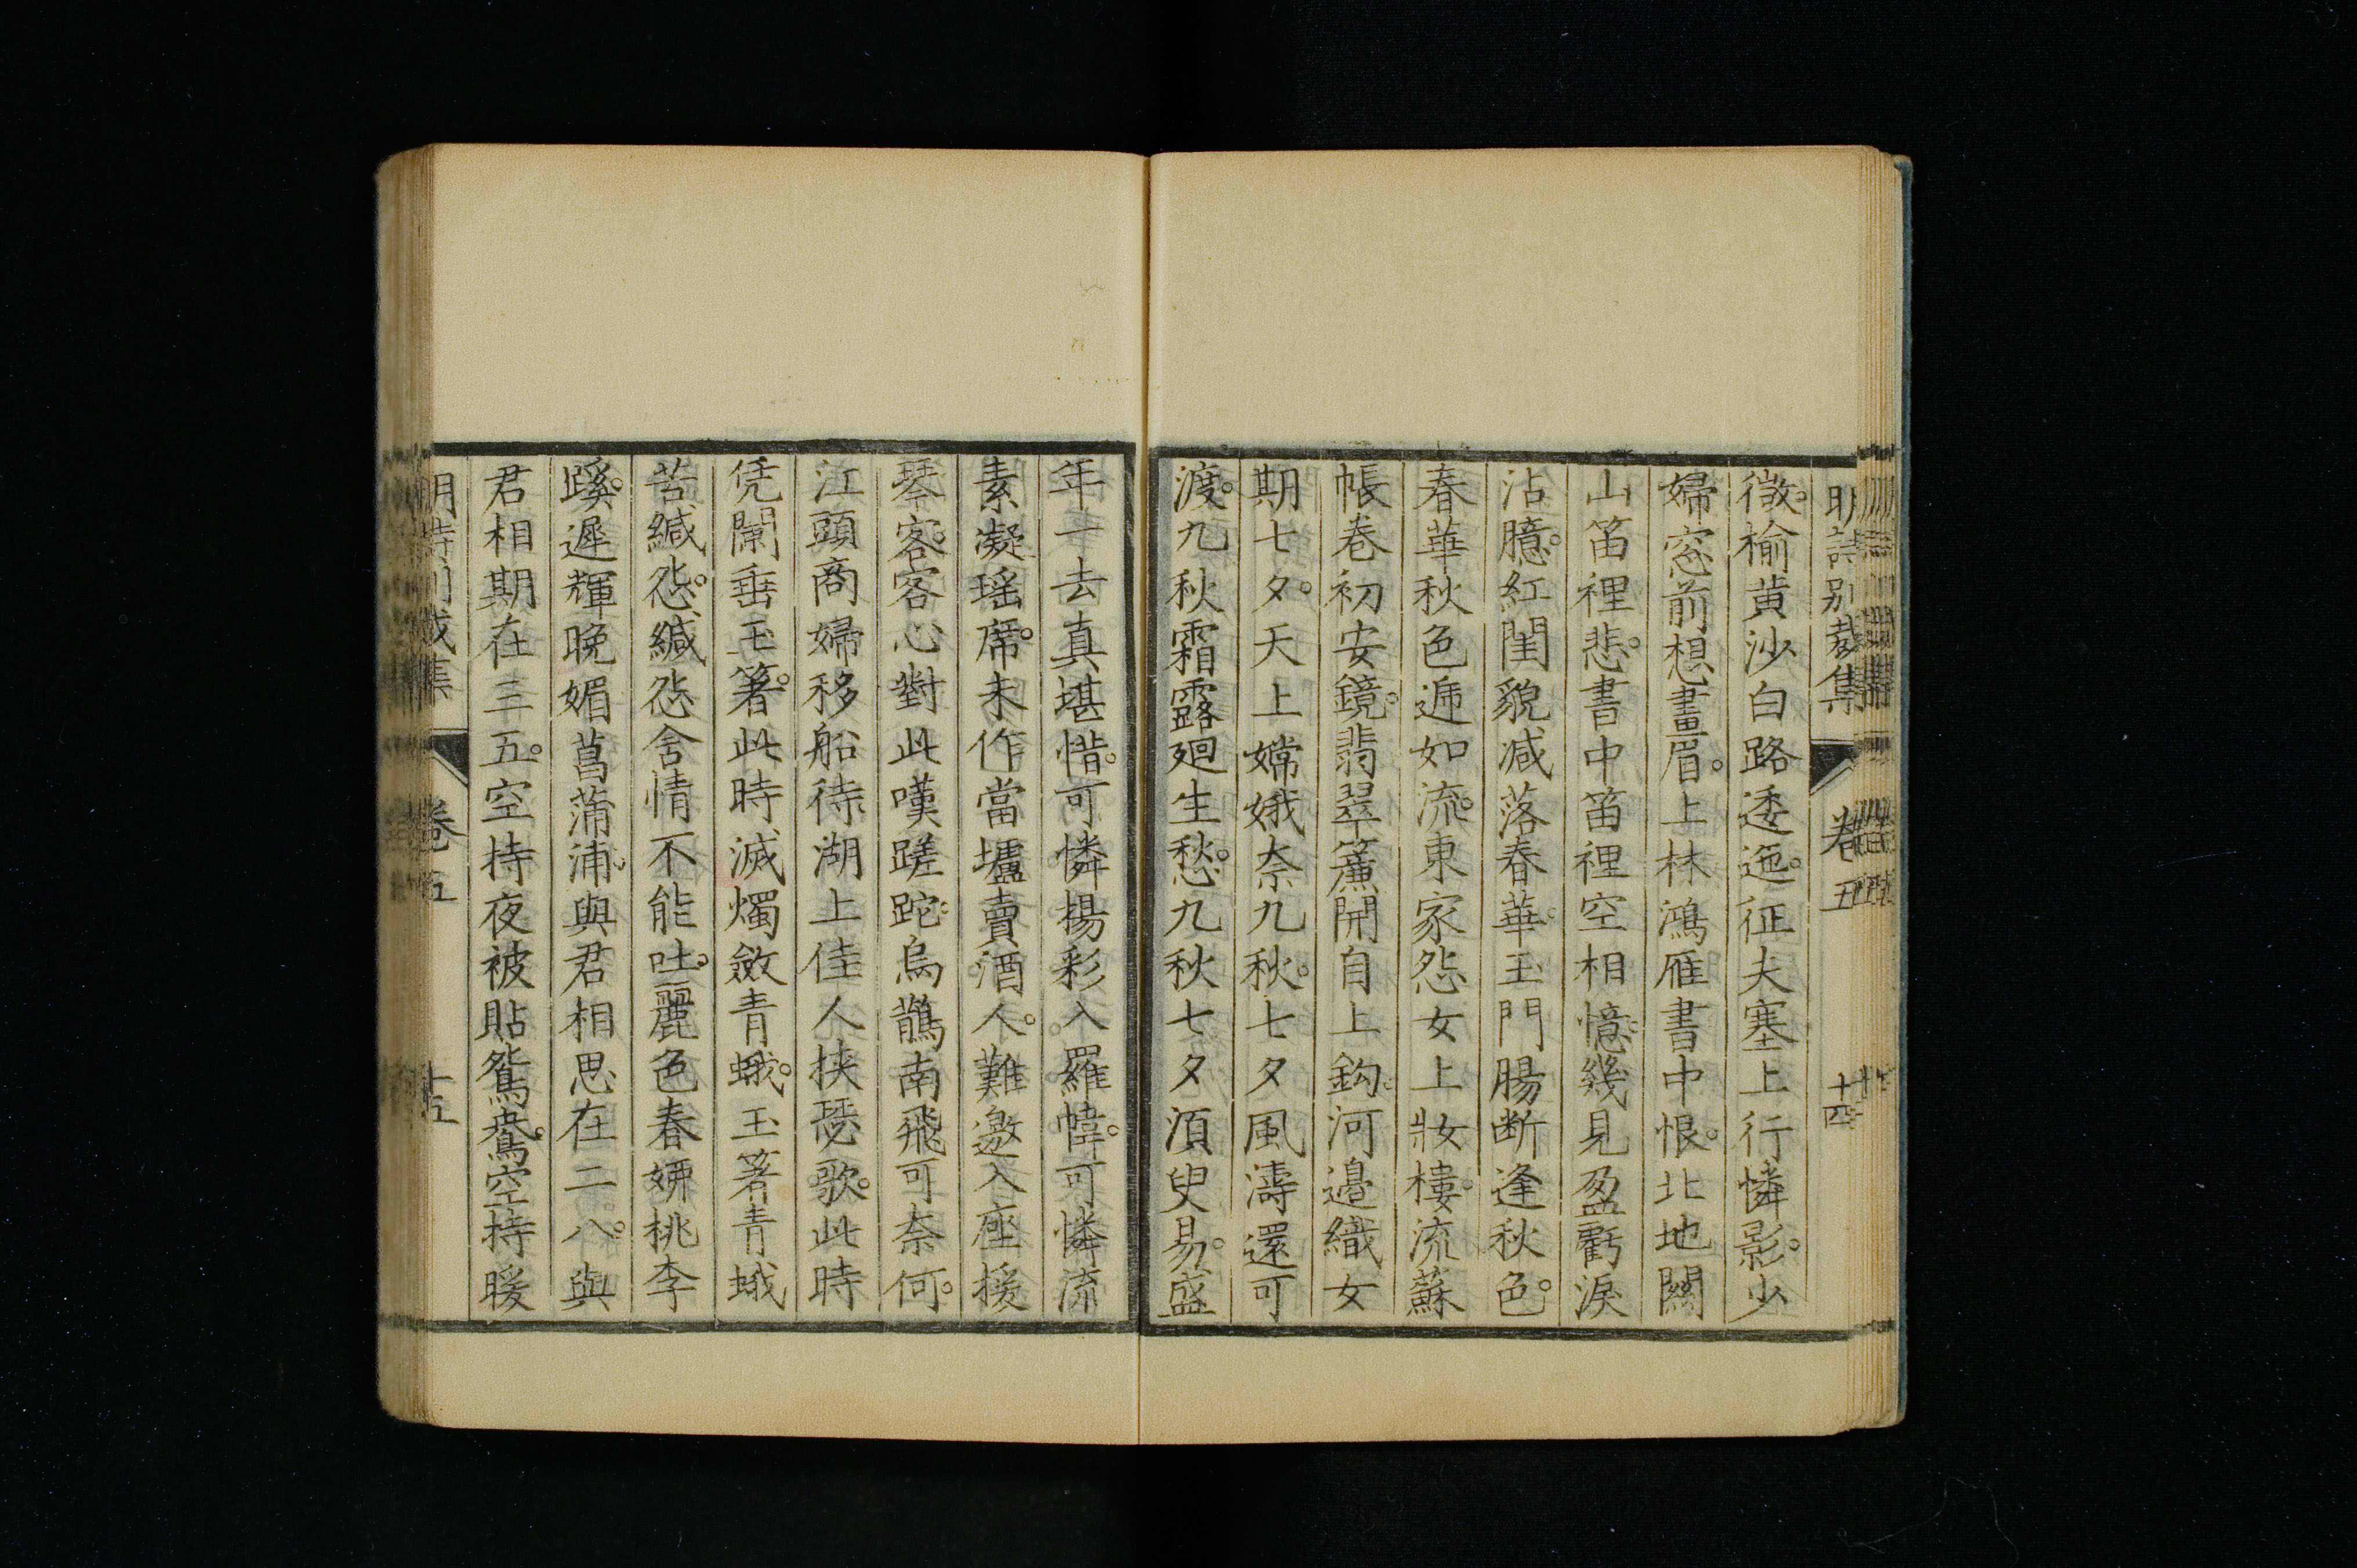 明詩別裁集 卷五 十四
徵楡黄沙白路逶迤征夫塞上行憐影少
婦窓前想畫眉上林鴻雁書中恨北地關
山笛裡悲書中笛裡空相憶幾見盈虧淚
沾臆紅閨貌減落春華玉門腸断逢秋色
春華秋色遞如流東家怨女上妝樓流蘇
帳卷初安鏡翡翠簾開自上鈎河邊織女
期七夕天上嫦娥奈九秋七夕風濤還可
渡九秋霜露迴生愁九秋七夕須臾易盛
年一去真堪惜可憐揚彩入羅幃可憐流
素凝瑶席未作當壚賣酒人難邀入座援
琴客客心對此嘆蹉跎烏鵲南飛可奈何
江頭商婦移船待湖上佳人挾瑟歌此時
凭闌垂玉箸此時滅燭斂青蛾玉箸青蛾
苦緘怨緘怨含情不能吐麗色春妍桃李
蹊遲輝晚媚菖蒲浦與君相思在二八與
君相期在三五空持夜被貼鴛鴦空持暖
明詩別裁集 卷五 十五